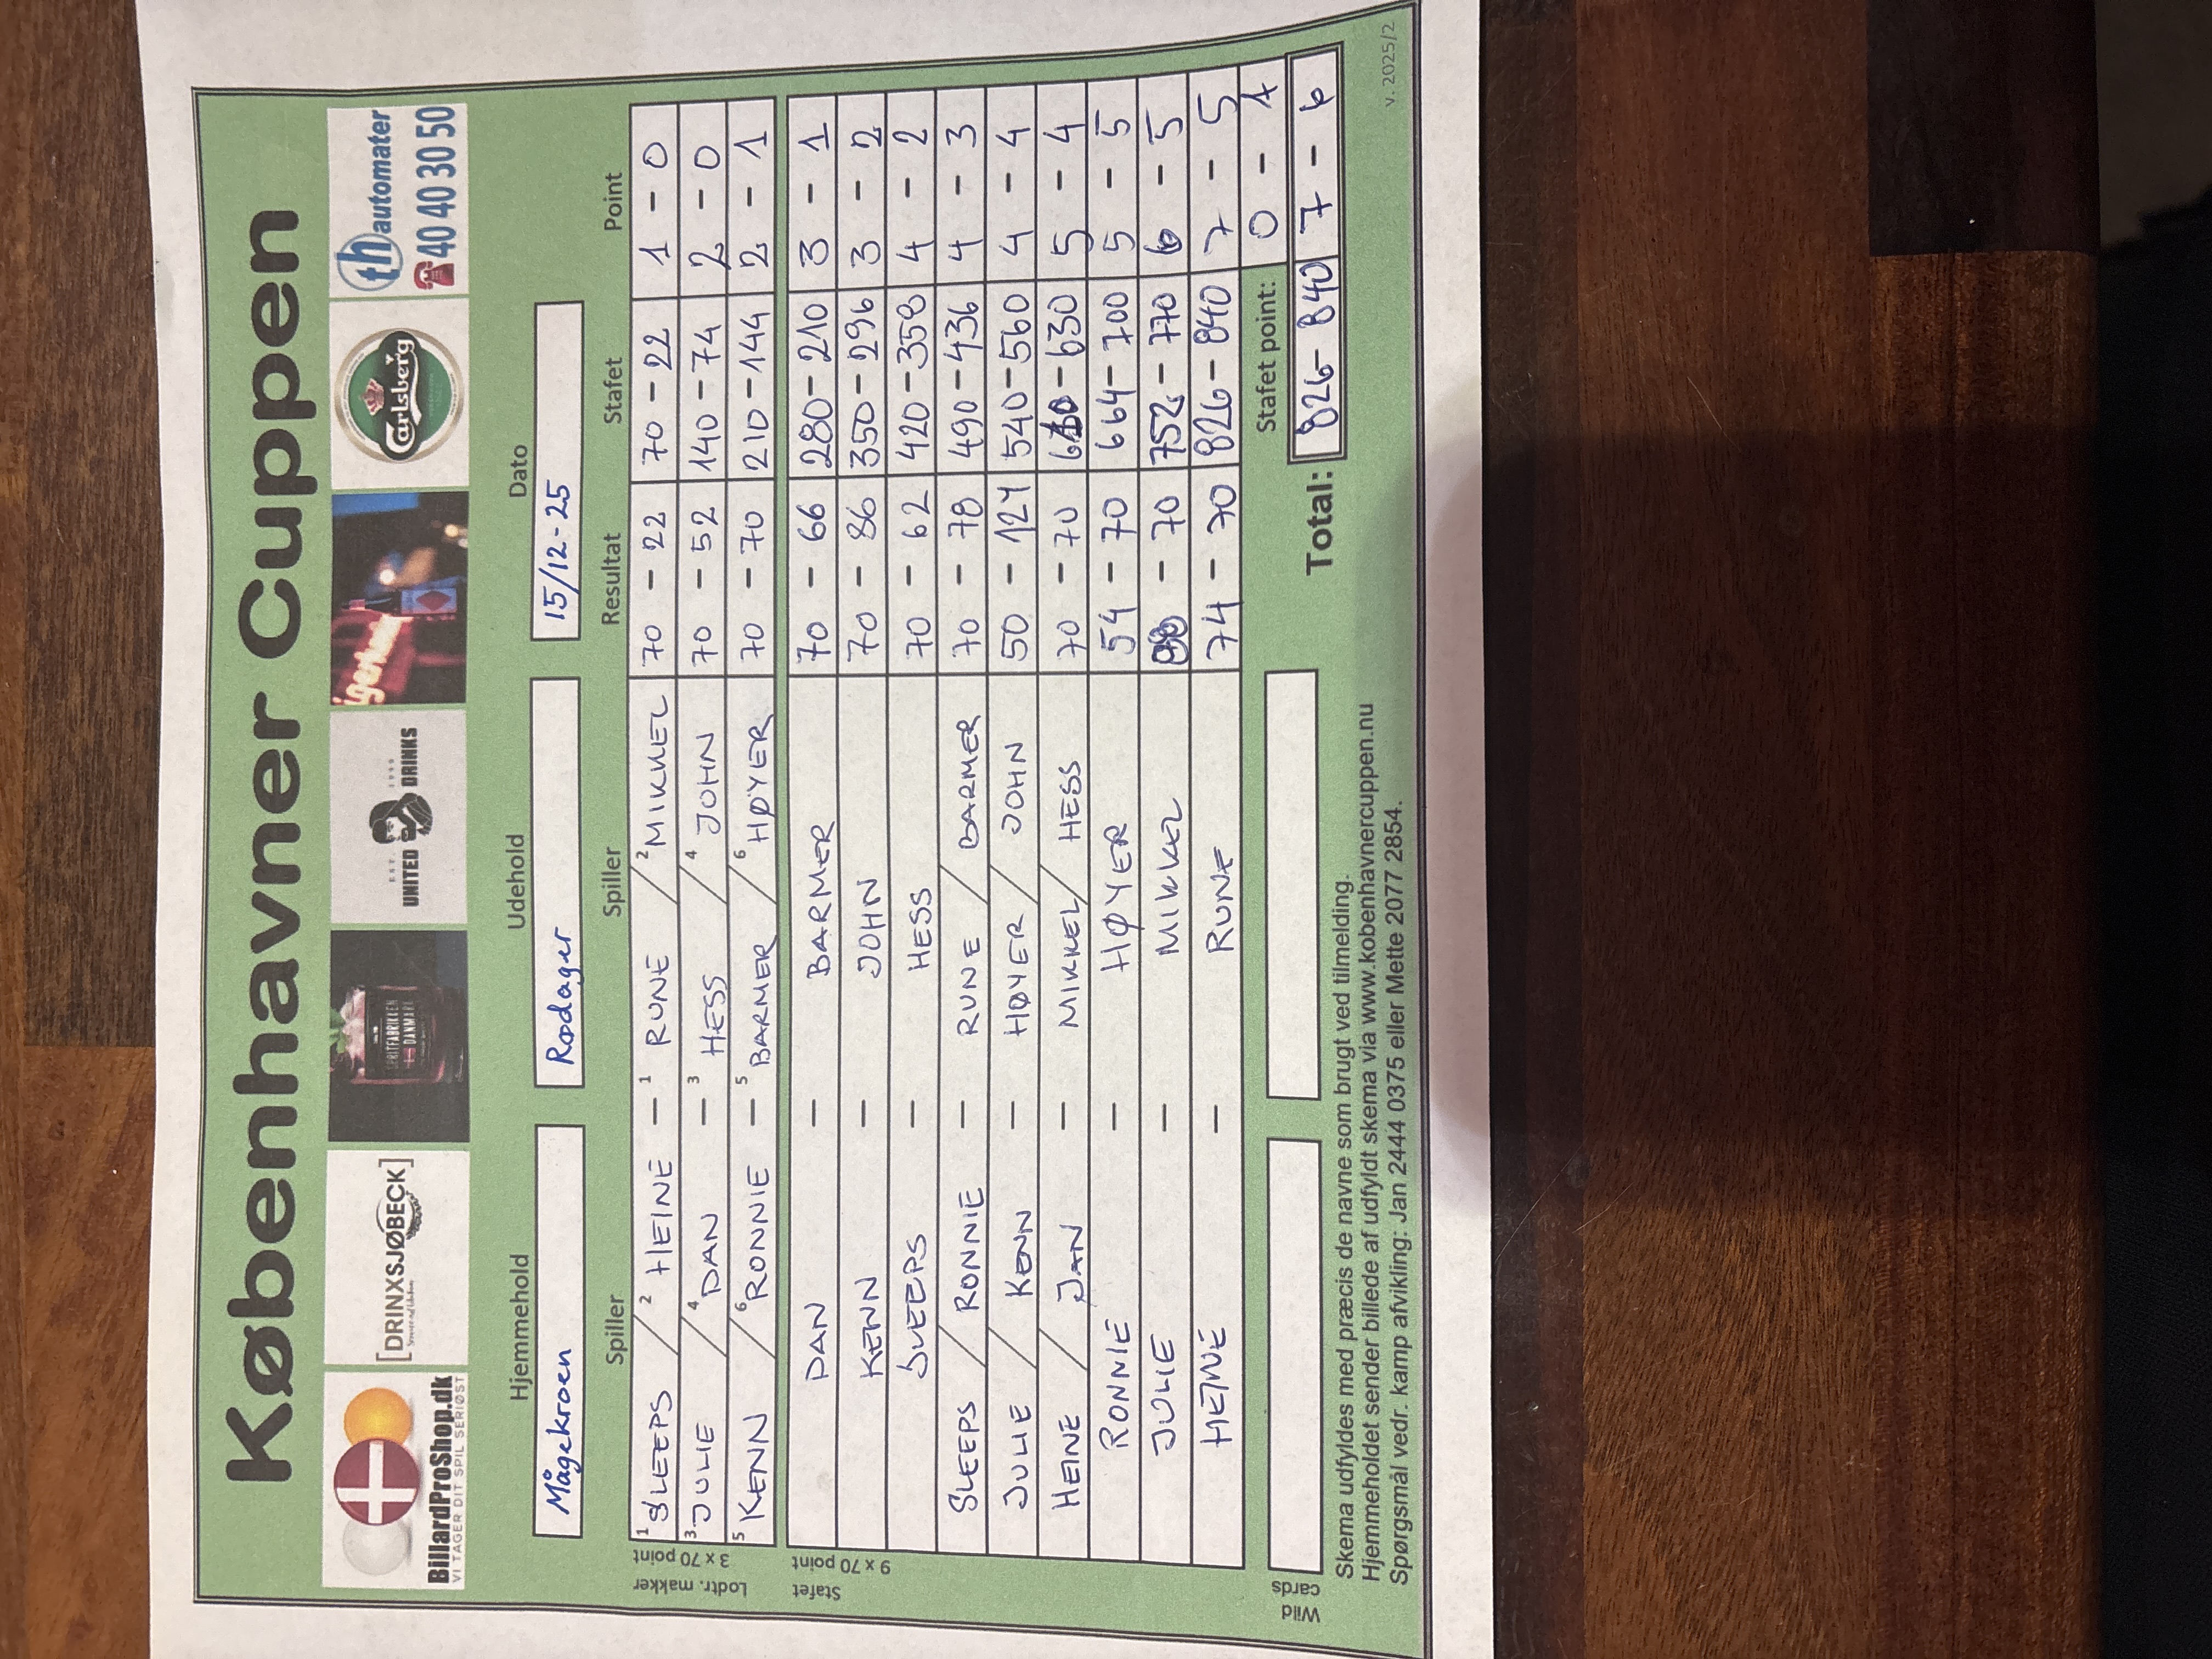 Københavner Cuppen
BillardProShop.dk
VI TAGER DIT SPIL SERIØST
[DRINXSJØBECK]
SPRITFABRIKKEN
DANMARK
EST. 1998
UNITED DRINKS
igerkroen
Carlsberg
th automater
40 40 30 50
Hjemmehold Udehold Dato
Mågekroen Rødager 15/12-25
Spiller Spiller Resultat Stafet Point
Lodtr. makker
3 x 70 point
1 SLEEPS / 2 HEINE – 1 RUNE / 2 MIKKEL 70 – 22 70 – 22 1 – 0
3 JULIE / 4 DAN – 3 HESS / 4 JOHN 70 – 52 140 – 74 2 – 0
5 KENN / 6 RONNIE – 5 BARMER / 6 HØYER 70 – 70 210 – 144 2 – 1
Stafet
9 x 70 point
DAN – BARMER 70 – 66 280 – 210 3 – 1
KENN – JOHN 70 – 86 350 – 296 3 – 2
SLEEPS – HESS 70 – 62 420 – 358 4 – 2
SLEEPS / RONNIE – RUNE / BARMER 70 – 78 490 – 436 4 – 3
JULIE / KENN – HØYER / JOHN 50 – 124 540 – 560 4 – 4
HEINE / JAN – MIKKEL / HESS 70 – 70 – 630 5 – 4
RONNIE – HØYER 54 – 70 664 – 700 5 – 5
JULIE – MIKKEL – 70 752 – 770 6 – 5
HEINE – RUNE 74 – 70 826 – 840 7 – 5
Stafet point: 0 – 1
Wild cards
Total: 826 – 840 7 – 6
Skema udfyldes med præcis de navne som brugt ved tilmelding.
Hjemmeholdet sender billede af udfyldt skema via www.kobenhavnercuppen.nu
Spørgsmål vedr. kamp afvikling: Jan 2444 0375 eller Mette 2077 2854.
v. 2025/2